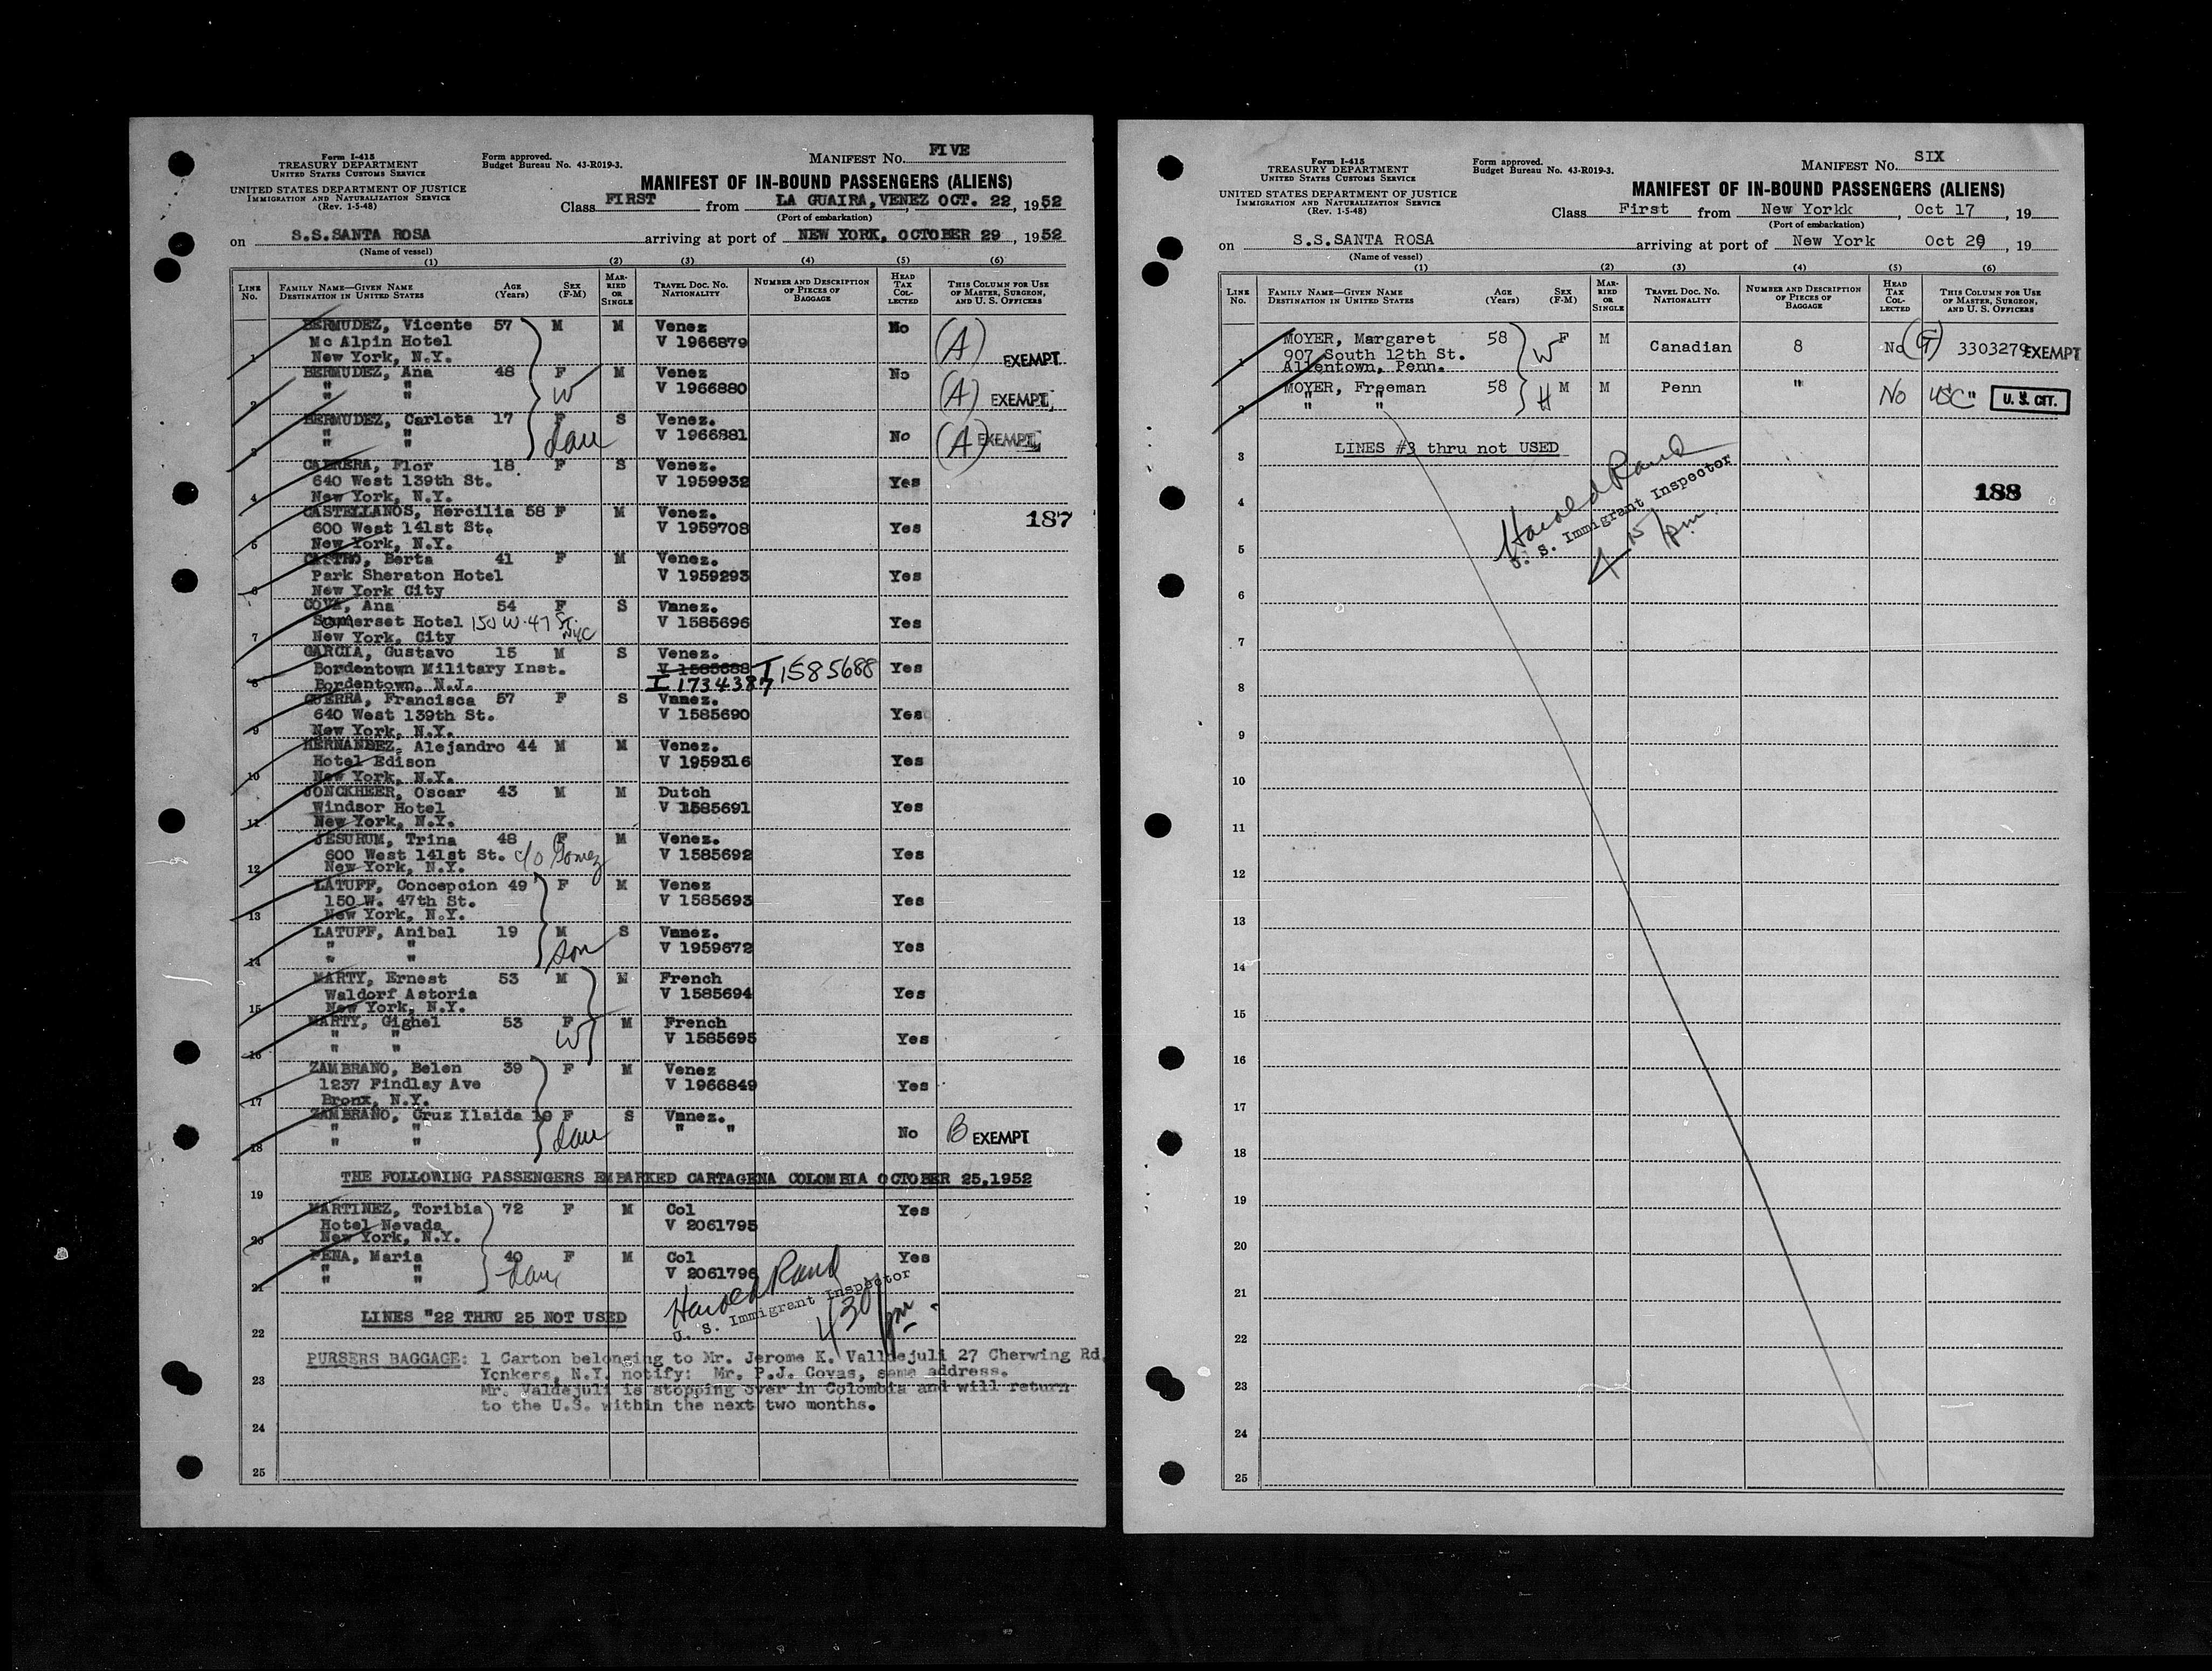 Form I-415
TREASURY DEPARTMENT
UNITED STATES CUSTOMS SERVICE
UNITED STATES DEPARTMENT OF JUSTICE
IMMIGRATION AND NATURALIZATION SERVICE
(Rev. 1-5-48)
Form approved.
Budget Bureau No. 43-R019-3.
MANIFEST No. FIVE
MANIFEST OF IN-BOUND PASSENGERS (ALIENS)
Class FIRST from LA GUAIRA, VENEZ OCT. 22, 1952
(Port of embarkation)
on S.S.SANTA ROSA arriving at port of NEW YORK, OCTOBER 29, 1952
(Name of vessel)
(1) (2) (3) (4) (5) (6)
LINE No. FAMILY NAME—GIVEN NAME DESTINATION IN UNITED STATES AGE (Years) SEX (F-M) MARRIED OR SINGLE TRAVEL DOC. NO. NATIONALITY NUMBER AND DESCRIPTION OF PIECES OF BAGGAGE HEAD TAX COLLECTED THIS COLUMN FOR USE OF MASTER, SURGEON, AND U. S. OFFICERS
BERMUDEZ, Vicente 57 M M Venez No (A)
Mc Alpin Hotel V 1966879
1 New York, N.Y. EXEMPT
BERMUDEZ, Ana 48 F M Venez No (A)
2 " " W V 1966880 EXEMPT
BERMUDEZ, Carlota 17 F S Venez.
3 " " dau V 1966881 No (A) EXEMPT
" "
CABRERA, Flor 18 F S Venez.
640 West 139th St. V 1959932 Yes
4 New York, N.Y.
CASTELLANOS, Hercilia 58 F M Venez. 187
600 West 141st St. V 1959708 Yes
5 New York, N.Y.
CASTRO, Berta 41 F M Venez.
Park Sheraton Hotel V 1959293 Yes
6 New York City
COVA, Ana 54 F S Vnez.
Somerset Hotel 150 W. 47 St. NYC V 1585696 Yes
7 New York. City
GARCIA, Gustavo 15 M S Venez.
Bordentown Military Inst. V 1585688 I 1585688 Yes
8 Bordentown, N.J. I 1734387
GUERRA, Francisca 57 F S Vnez.
640 West 139th St. V 1585690 Yes
9 New York, N.Y.
HERNANDEZ, Alejandro 44 M M Venez.
Hotel Edison V 1959316 Yes
10 New York, N.Y.
JONCKHEER, Oscar 43 M M Dutch
Windsor Hotel V 1585691 Yes
11 New York, N.Y.
JESURUM, Trina 48 F M Venez.
600 West 141st St. c/o Gomez V 1585692 Yes
12 New York, N.Y.
LATUFF, Concepcion 49 F M Venez
150 W. 47th St. V 1585693 Yes
13 New York, N.Y.
LATUFF, Anibal 19 M S Vnez.
14 " " son V 1959672 Yes
" "
MARTY, Ernest 53 M M French
Waldorf Astoria V 1585694 Yes
15 New York, N.Y.
MARTY, Gighel 53 F M French
16 " " W V 1585695 Yes
" "
ZAMBRANO, Belen 39 F M Venez
1237 Findlay Ave V 1966849 Yes
17 Bronx, N.Y.
ZAMBRANO, Cruz Ilaida F S Vnez.
" " " "
18 " " dau No B EXEMPT
THE FOLLOWING PASSENGERS EMBARKED CARTAGENA COLOMBIA OCTOBER 25.1952
19
MARTINEZ, Toribia 72 F M Col Yes
Hotel Nevada V 2061795
20 New York, N.Y.
PENA, Maria 40 F M Col Yes
" " dau V 2061796
21 " "
Harold Rand
U. S. Immigrant Inspector
430/pm
LINES "22 THRU 25 NOT USED
22
PURSERS BAGGAGE: 1 Carton belonging to Mr. Jerome K. Valldejuli 27 Cherwing Rd.
Yonkers, N.Y. notify: Mr. P.J. Covas, same address.
23
Mr. Valdejuli is stopping over in Colombia and will return
to the U.S. within the next two months.
24
25
Form I-415
TREASURY DEPARTMENT
UNITED STATES CUSTOMS SERVICE
UNITED STATES DEPARTMENT OF JUSTICE
IMMIGRATION AND NATURALIZATION SERVICE
(Rev. 1-5-48)
Form approved.
Budget Bureau No. 43-R019-3.
MANIFEST No. SIX
MANIFEST OF IN-BOUND PASSENGERS (ALIENS)
Class First from New Yorkk, Oct 17, 19
(Port of embarkation)
on S.S.SANTA ROSA arriving at port of New York Oct 29, 19
(Name of vessel)
(1) (2) (3) (4) (5) (6)
LINE No. FAMILY NAME—GIVEN NAME DESTINATION IN UNITED STATES AGE (Years) SEX (F-M) MARRIED OR SINGLE TRAVEL DOC. NO. NATIONALITY NUMBER AND DESCRIPTION OF PIECES OF BAGGAGE HEAD TAX COLLECTED THIS COLUMN FOR USE OF MASTER, SURGEON, AND U. S. OFFICERS
MOYER, Margaret 58 F M
907 South 12th St. W Canadian 8 No (G) 3303279 EXEMPT
1 Allentown, Penn.
MOYER, Freeman 58 M M Penn " No USC" U. S. CIT.
" " H
2 " "
LINES #3 thru not USED
3
Harold Rand
U. S. Immigrant Inspector
4 15/pm.
188
4
5
6
7
8
9
10
11
12
13
14
15
16
17
18
19
20
21
22
23
24
25